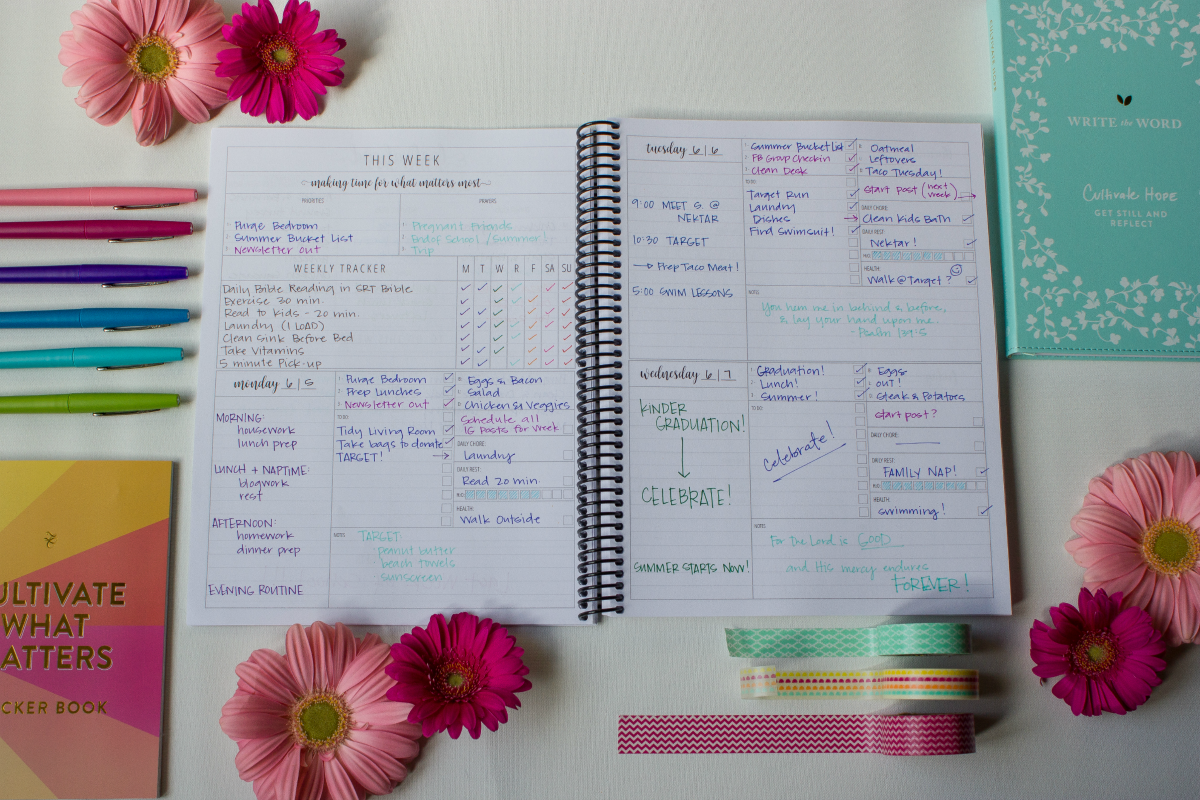 THIS WEEK
making time for what matters most
PRIORITIES
Purge Bedroom
Summer Bucket List
Newsletter out
PRAYERS
Pregnant Friends
End of School / Summer!
Trip
WEEKLY TRACKER M T W R F SA SU
Daily Bible Reading in SRT Bible
Exercise 30 min.
Read to kids - 20 min.
Laundry (1 LOAD)
Clean Sink Before Bed
Take Vitamins
5 minute Pick-up
monday 6 | 5
MORNING:
housework
lunch prep
LUNCH + NAPTIME:
blogwork
rest
AFTERNOON:
homework
dinner prep
EVENING ROUTINE
Purge Bedroom
Prep Lunches
Newsletter out
TO DO
Tidy Living Room
Take bags to donate
TARGET! →
Eggs & Bacon
Salad
Chicken & Veggies
Schedule all
IG Posts for week
DAILY CHORE:
Laundry
DAILY REST:
Read 20 min
H2O
HEALTH:
Walk Outside
NOTES
TARGET:
- peanut butter
- beach towels
- sunscreen
tuesday 6 | 6
9:00 MEET S. @
NEKTAR
10:30 TARGET
→ Prep Taco Meat!
5:00 SWIM LESSONS
Summer Bucket List
FB Group Checkin
Clean Desk
TO DO
Target Run
Laundry
Dishes →
Find Swimsuit!
Oatmeal
Leftovers
Taco Tuesday!
start post (next week) →
DAILY CHORE:
Clean Kids Bath
DAILY REST:
Nektar!
H2O
HEALTH:
Walk @ Target?
NOTES
You hem me in behind & before,
& lay your hand upon me.
- Psalm 139:5
wednesday 6 | 7
KINDER
GRADUATION!
CELEBRATE!
SUMMER STARTS NOW!
Graduation!
Lunch!
Summer!
TO DO
Celebrate!
Eggs
OUT!
Steak & Potatoes
start post?
DAILY CHORE:
DAILY REST:
FAMILY NAP!
H2O
HEALTH:
swimming!
NOTES
For the Lord is GOOD
and His mercy endures
FOREVER!
WRITE the WORD
Cultivate Hope
GET STILL AND
REFLECT
ULTIVATE
WHAT
ATTERS
CKER BOOK